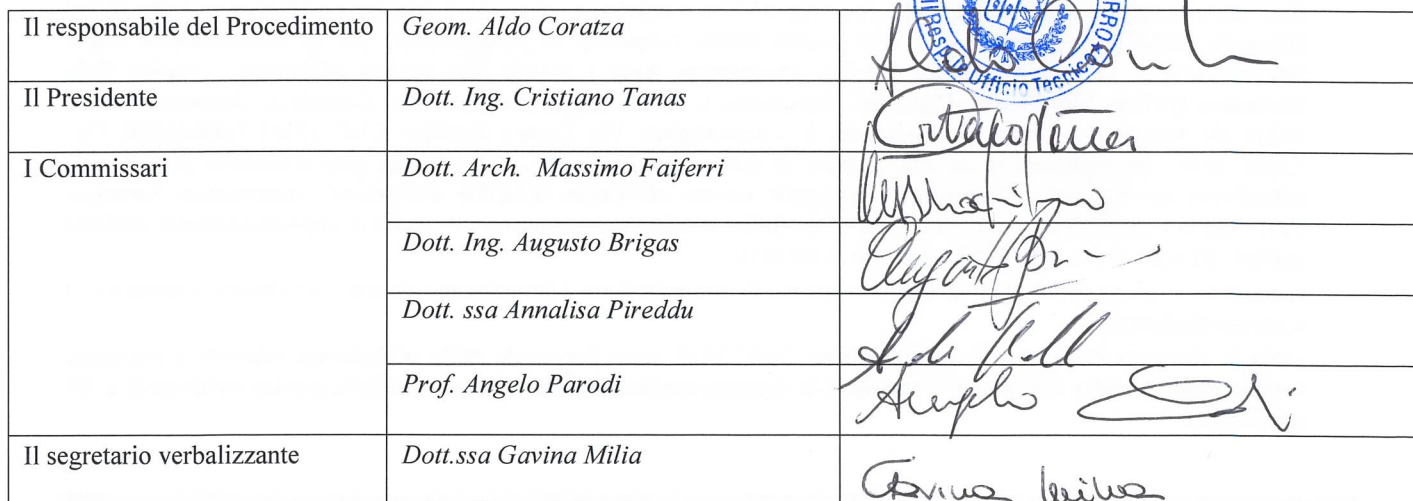 Il responsabile del Procedimento Geom. Aldo Coratza Aldo
Resple Ufficio Tecnico
Il Presidente Dott. Ing. Cristiano Tanas
I Commissari Dott. Arch. Massimo Faiferri
Dott. Ing. Augusto Brigas
Dott. ssa Annalisa Pireddu
Prof. Angelo Parodi Angelo
Il segretario verbalizzante Dott.ssa Gavina Milia Gavina Milia